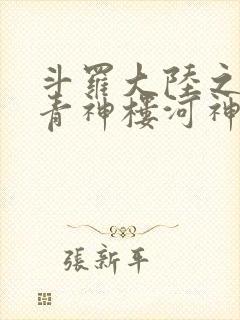 斗羅大陸之
青神樓河神
張新平